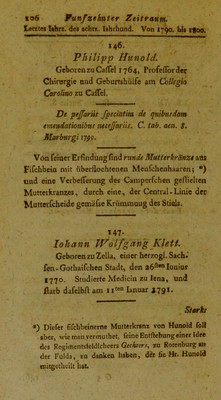 106 Funfzehnter Zeitraum.
Letztes Iahrz. des achtz. Iahrhund. Von 1790. bis 1800.
146.
Philipp Hunold.
Geboren zu Cassel 1764, Professor der
Chirurgie und Geburtshülfe am Collegio
Carolino zu Cassel.
De pessariis speciatim de quibusdam
emendationibus necessariis. C. tab. aen. 8.
Marburgi 1790.
Von seiner Erfindung sind runde Mutterkränze aus
Fischbein mit überflochtenen Menschenhaaren; *)
und eine Verbesserung des Camperschen gestielten
Mutterkranzes, durch eine, der Central-Linie der
Mutterscheide gemässe Krümmung des Stiels.
147.
Iohann Wolfgang Klett.
Geboren zu Zella, einer herzogl. Sach-
sen-Gothaischen Stadt, den 26sten Iunius
1770. Studierte Medicin zu Iena, und
starb daselbst am 11ten Ianuar 1791.
Starks
*) Dieser fischbeinerne Mutterkranz von Hunold soll
aber, wie man vermuthet, seine Entstehung einer Idee
des Regimentsfeldscheers Gerhters, zu Rotenburg an
der Fulda, zu danken haben, der sie Hr. Hunold
mitgetheilt hat.